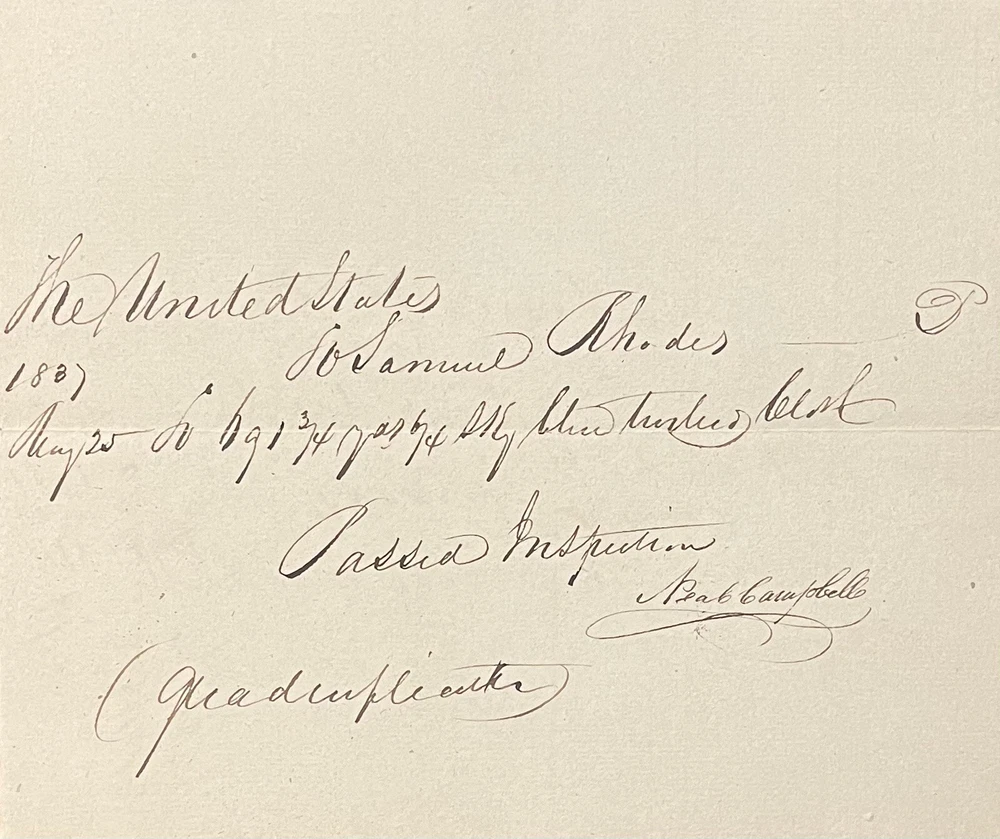 The United States
To Samuel Rhodes
1837
May 25 To 691 3/4 yds 6/4 Sky blue Cloth
Passed Inspection
Campbell
(Quadruplicate)